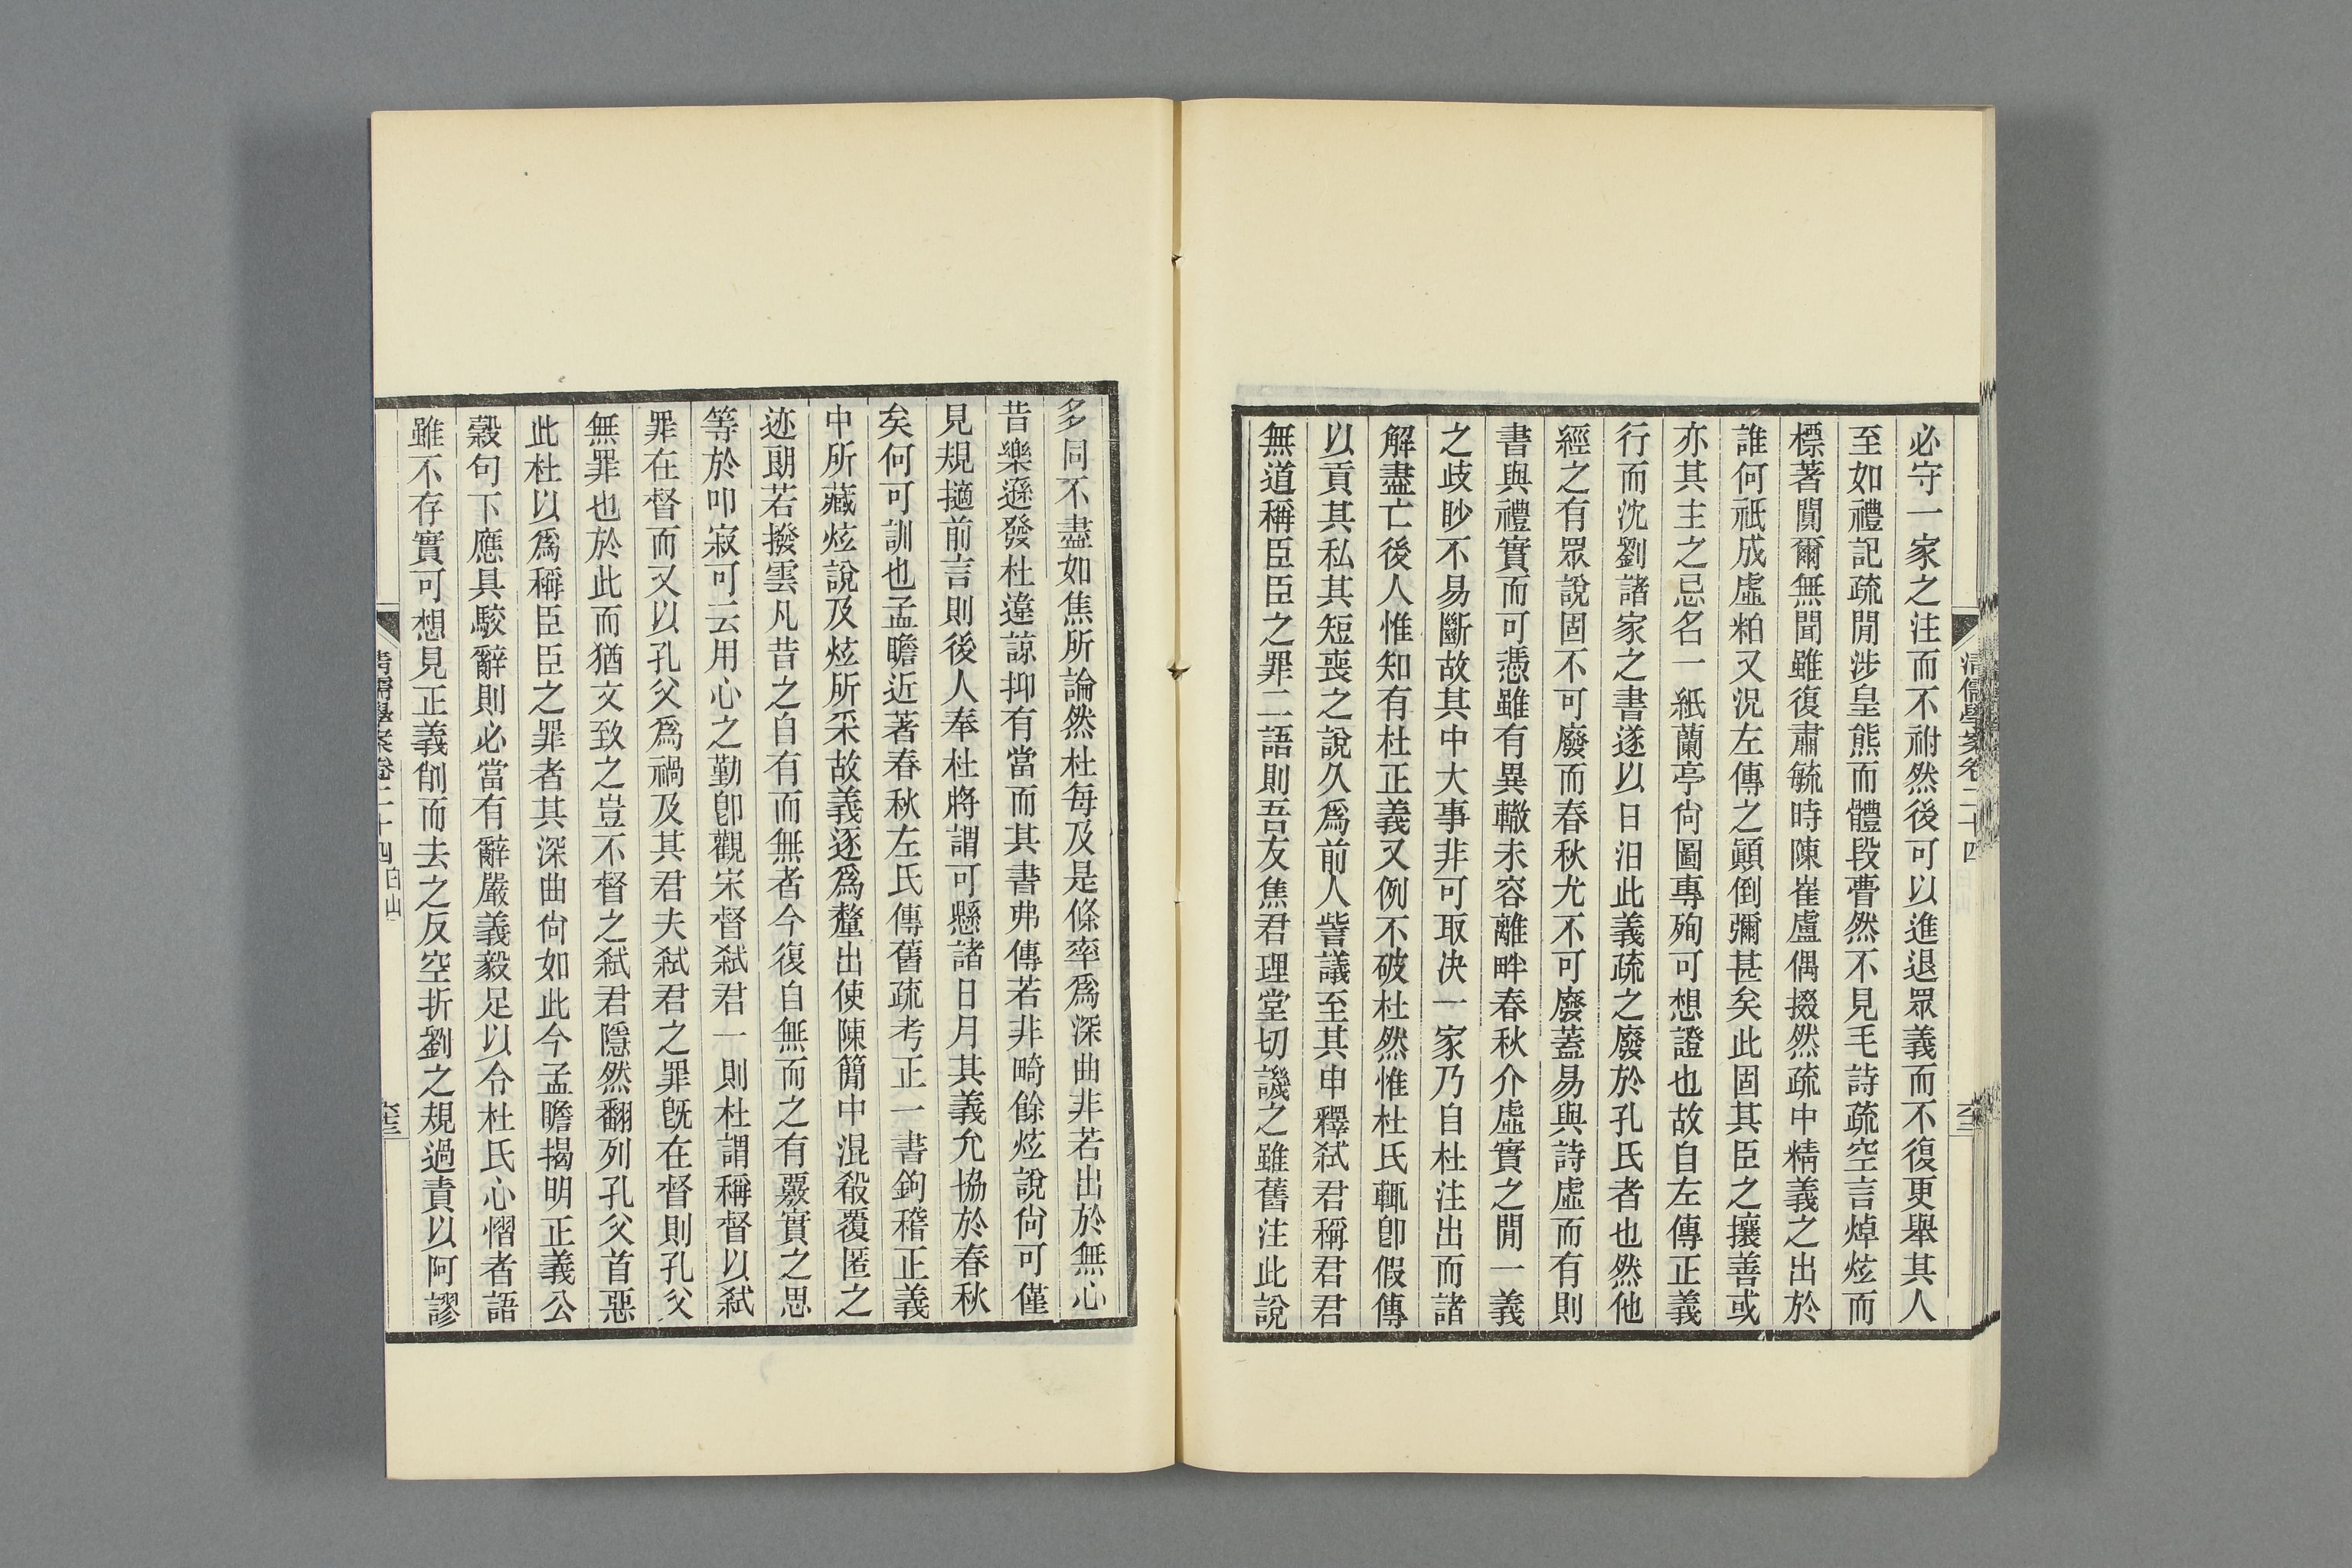 清儒學案卷二十四
必守一家之注而不祔然後可以進退眾義而不復更舉其人
至如禮記疏閒涉皇熊而體段瞢然不見毛詩疏空言焯炫而
標著闃爾無聞雖復肅毓時陳崔盧偶掇然疏中精義之出於
誰何祇成虛粕又況左傳之顚倒彌甚矣此固其臣之攘善或
亦其主之忌名一紙蘭亭尙圖專殉可想證也故自左傳正義
行而沈劉諸家之書遂以日汨此義疏之廢於孔氏者也然他
經之有眾說固不可廢而春秋尤不可廢蓋易與詩虛而有則
書與禮實而可憑雖有異轍未容離畔春秋介虛實之閒一義
之歧眇不易斷故其中大事非可取決一家乃自杜注出而諸
解盡亡後人惟知有杜正義又例不破杜然惟杜氏輒卽假傳
以貢其私其短喪之說久爲前人訾議至其申釋弒君稱君君
無道稱臣臣之罪二語則吾友焦君理堂切譏之雖舊注此說
多同不盡如焦所論然杜每及是條率爲深曲非若出於無心
昔樂遜發杜違諒抑有當而其書弗傳若非畸餘炫說尙可僅
見規擿前言則後人奉杜將謂可懸諸日月其義允協於春秋
矣何可訓也孟瞻近著春秋左氏傳舊疏考正一書鉤稽正義
中所藏炫說及炫所采故義逐爲釐出使陳簡中混殽覆匿之
迹朗若撥雲凡昔之自有而無者今復自無而之有覈實之思
等於叩寂可云用心之勤卽觀宋督弒君一則杜謂稱督以弒
罪在督而又以孔父爲禍及其君夫弒君之罪旣在督則孔父
無罪也於此而猶文致之豈不督之弒君隱然翻列孔父首惡
此杜以爲稱臣臣之罪者其深曲尙如此今孟瞻揭明正義公
穀句下應具駮辭則必當有辭嚴義毅足以令杜氏心慴者語
雖不存實可想見正義削而去之反空折劉之規過責以阿謬
清儒學案卷二十四 白山